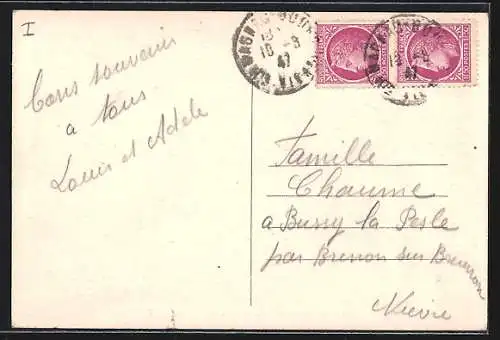 I
Bons souvenirs
a tous
Louis et Adele
47
47
Famille
Chaume
a Bussy la Pesle
par Brinon sur Beuvron
Nièvre